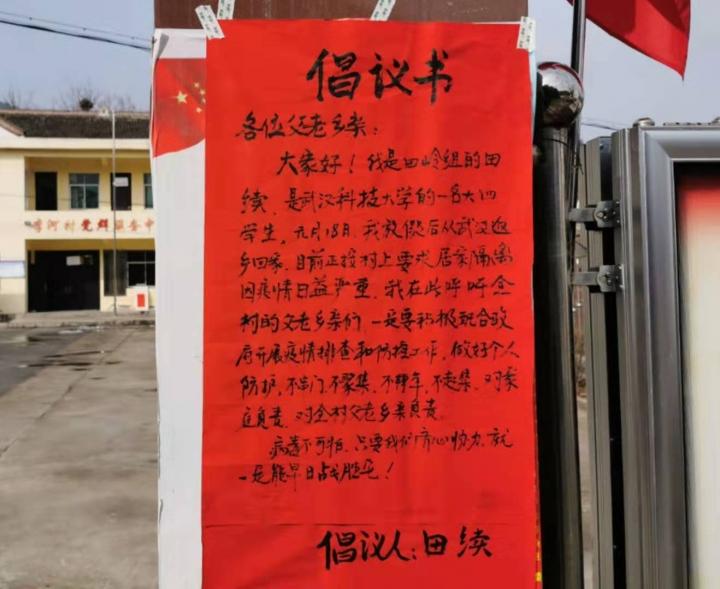 倡议书
各位父老乡亲：
大家好！我是田岭组的田
续，是武汉科技大学的一名大四
学生，元月18日，我放假后从武汉返
乡回家，目前正按村上要求居家隔离
因疫情日益严重，我在此呼吁全
村的父老乡亲们，一是要积极配合政
府开展疫情排查和防控工作，做好个人
防护，不串门，不聚集，不拜年，不赶集，对家
庭负责，对全村父老乡亲负责。
病毒不可怕，只要我们齐心协力，就
一定能早日战胜它！
倡议人：田续
河村党群服务中